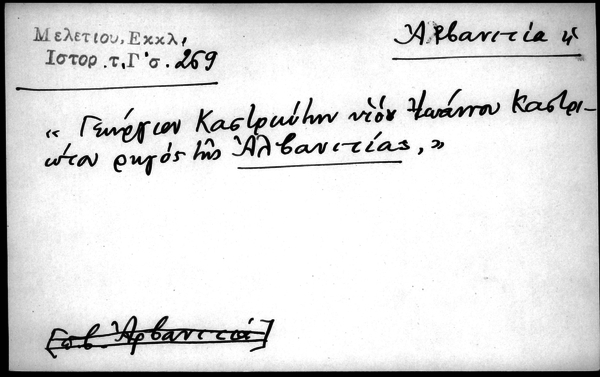 Μελετίου, Εκκλ.
Ιστορ. τ. Γ΄ σ. 269
Ἀλβανιτία ἡ
« Γεώργιον Καστριώτην υἱὸν Ἰωάννου Καστρι-
ώτου ρηγὸς τῆς Ἀλβανιτίας, »
[σ.β. Ἀρβανιτιά]